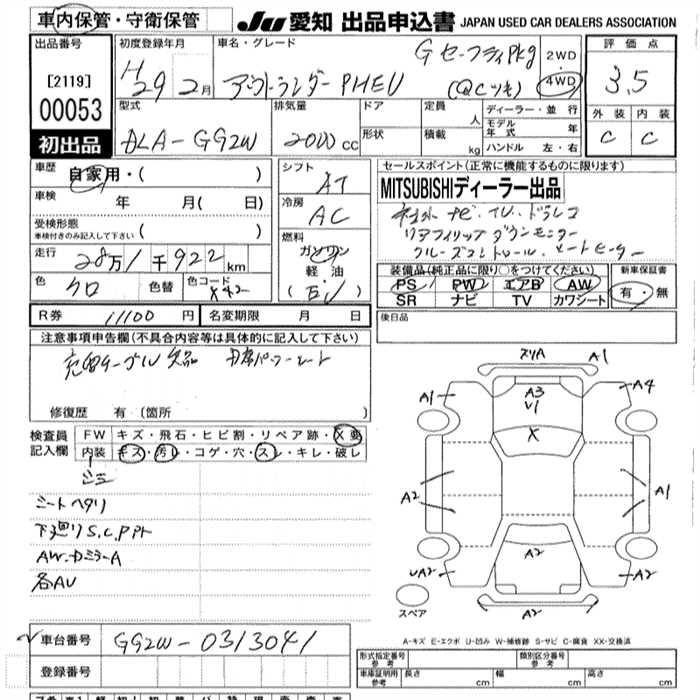 車内保管・守衛保管
JU 愛知 出品申込書 JAPAN USED CAR DEALERS ASSOCIATION
出品番号
[2119]
00053
初出品
初度登録年月
H29 2月
車名・グレード
アウトランダーPHEV
Gセーフティpkg
2WD
・
4WD
評価点
3.5
外装 内装
C C
型式
DLA-GG2W
排気量
2000cc
ドア
形状
定員
人
積載
kg
ディーラー・並行
モデル年式 年
ハンドル 左・右
車歴
自家用・( )
車検
年 月( 日)
受検形態
車検付きのみ記入して下さい ( )
走行
28万1千922km
色
クロ
色替
色コード
X42
シフト
AT
冷房
AC
燃料
ガソリン
軽油
( )
セールスポイント(正常に機能するものに限ります)
MITSUBISHIディーラー出品
社外ナビ・TV・ドラレコ
クルーズコントロール・シートヒーター
装備品(純正品に限り○をつけてください)
PS PW エアB AW
SR ナビ TV カワシート
新車保証書
有・無
後日品
R券 11100円 名変期限 月 日
注意事項申告欄(不具合内容等は具体的に記入して下さい)
充電ケーブル欠品 パワーシート
修復歴 有(箇所 )
検査員
記入欄
FW キズ・飛石・ヒビ割・リペア跡・X要
内装 キズ・汚レ・コゲ・穴・スレ・キレ・破レ
シミ
シートヘタリ
下廻りS.C.Pハト
AW.ドミラーA
各AU
A1
A3
U1
A1
A4
X
A2
A1
A2
UA2
A2
A2
スペア
A-キズ E-エクボ U-凹み W-補修跡 S-サビ C-腐食 XX-交換済
車台番号 GG2W-0313041
登録番号
形式指定番号
参考
類別区分番号
参考
車庫証明用
参考
長さ cm 幅 cm 高さ cm